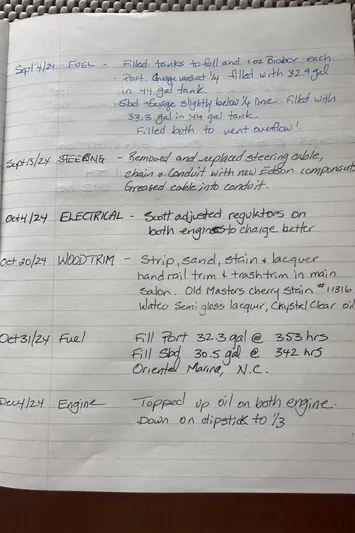 Sept 4/24 FUEL - Filled tanks to full and 1 oz Biobor each
- Port. Guage was at 1/4 filled with 32.9 gal
in 44 gal tank
- Sbd - Guage slightly below 1/4 line. Filled with
33.3 gal in 44 gal tank.
Filled both to vent overflow!
Sept 15/24 STEERING - Removed and replaced steering cable,
chain & Conduit with new Edson components
Greased cable into conduit.
Oct 4/24 ELECTRICAL - Scott adjusted regulators on
both engines to charge better
Oct 20/24 WOODTRIM - Strip, sand, stain & lacquer
hand rail trim & trash trim in main
Salon. Old Masters Cherry Stain #11316
Watco Semi gloss lacquer, Chrystel Clear oil
Oct 31/24 Fuel Fill Port 32.3 gal @ 353 hrs
Fill Sbd 30.5 gal @ 342 hrs
Oriental Marina, N.C.
Dec 4/24 Engine Topped up oil on both engine.
Down on dipstick to 1/3